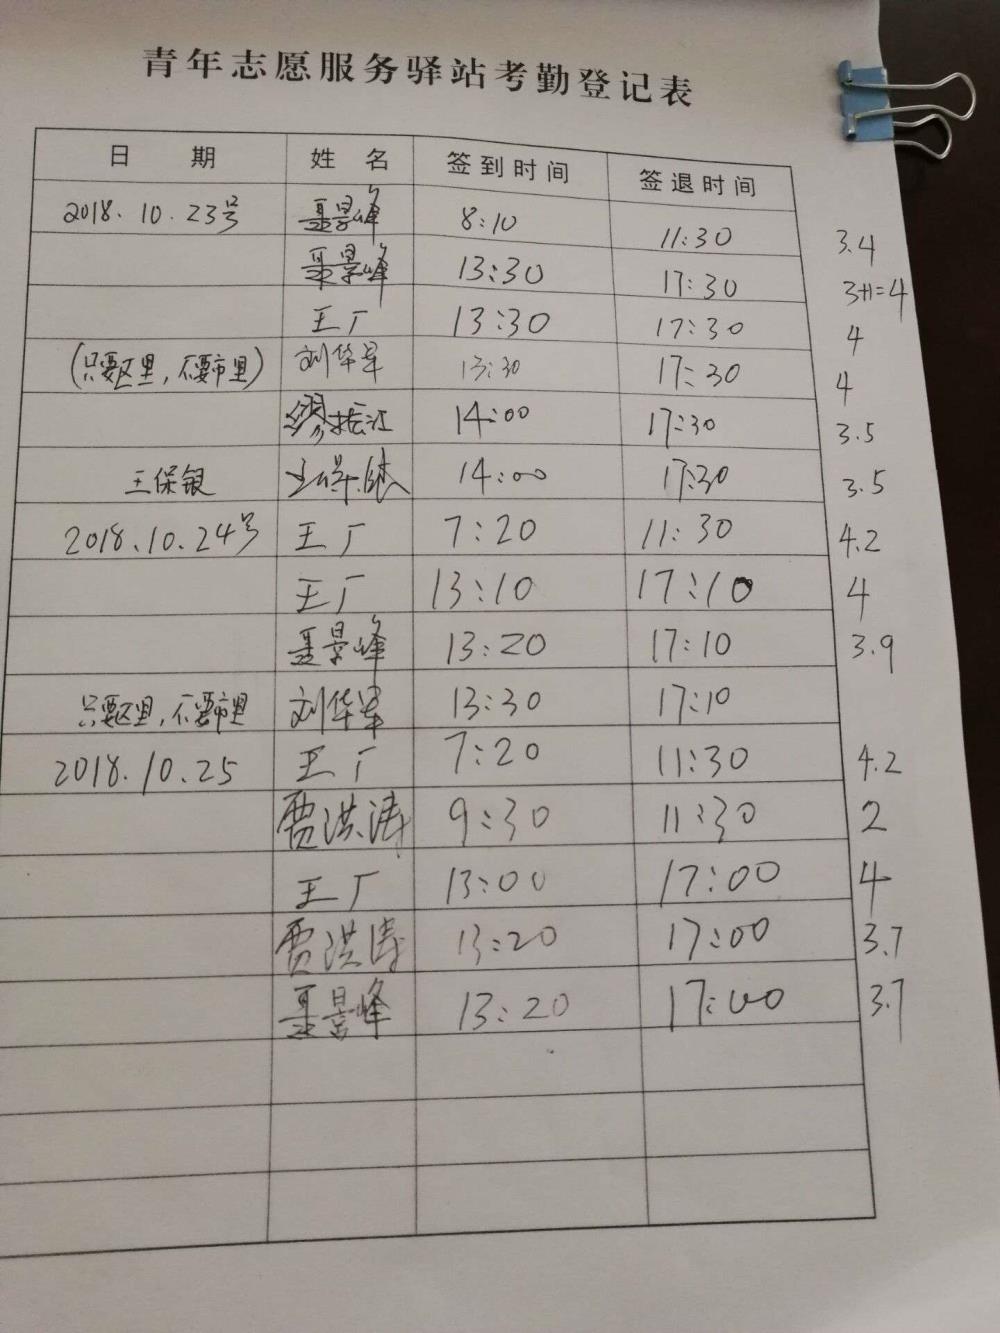 青年志愿服务驿站考勤登记表
日 期 姓 名 签到时间 签退时间
2018.10.23号 聂景峰 8:10 11:30 3.4
聂景峰 13:30 17:30 3+1=4
王厂 13:30 17:30 4
(只要区里,不要市里) 刘华军 13:30 17:30 4
缪振江 14:00 17:30 3.5
王保银 王保银 14:00 17:30 3.5
2018.10.24号 王厂 7:20 11:30 4.2
王厂 13:10 17:10 4
聂景峰 13:20 17:10 3.9
只要区里,不要市里 刘华军 13:30 17:10
2018.10.25 王厂 7:20 11:30 4.2
贾洪涛 9:30 11:30 2
王厂 13:00 17:00 4
贾洪涛 13:20 17:00 3.7
聂景峰 13:20 17:00 3.7